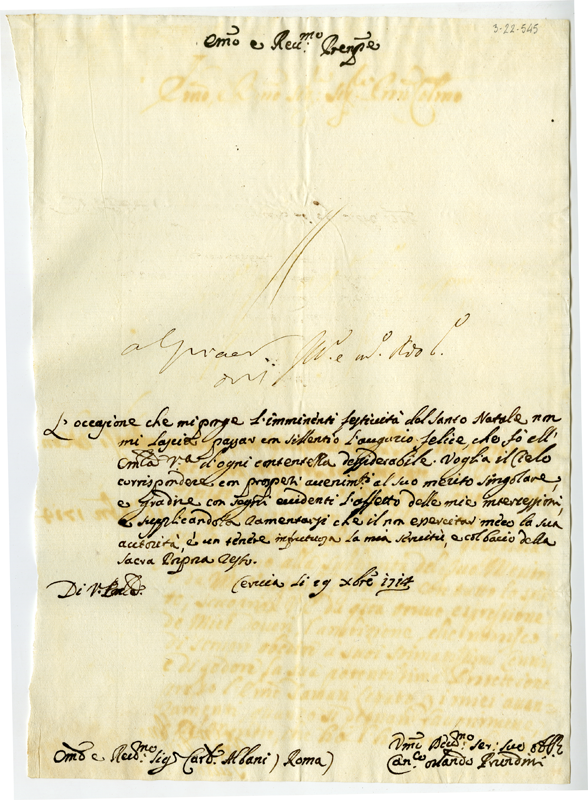 3-22-545
Em̃o e Reu.mo Prenpe
L'occasione che mi porge l'imminenti festiuità del Santo Natale non
mi lascia passar con sillentio l'augurio felice che fò all'
Em̃za V.ra d'ogni contentezza dessiderabile. Voglia il Cielo
corrispondere con prosperi auenimti al Suo merito singolare,
e gradire con segni euidenti l'affetto delle mie intercessioni,
e supplicandola ramentarsi che il non esercitar meco la sua
autorità, è un tenere infrutuosa la mia seruitù, e col bacio della
Sacra Porpora resto.
Di V. Em.za Ceruia li 29 Xbre 1714
Em̃o e Reu.mo Sig. Card. Albani) Roma)
Vm̃o Deu.mo Ser: suo obb.
Can.co Orlando